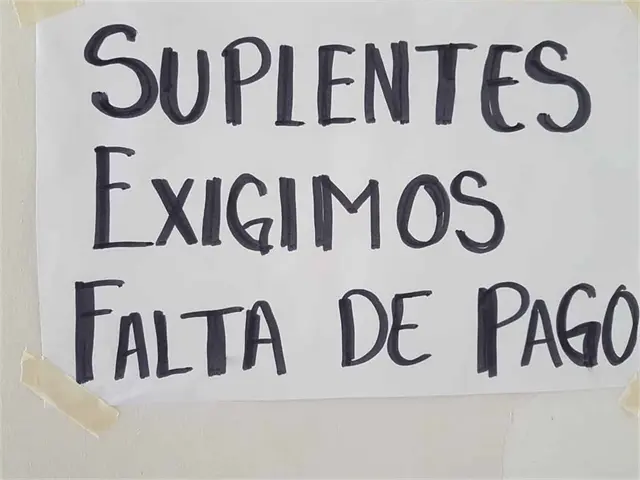 SUPLENTES
EXIGIMOS
FALTA DE PAGO